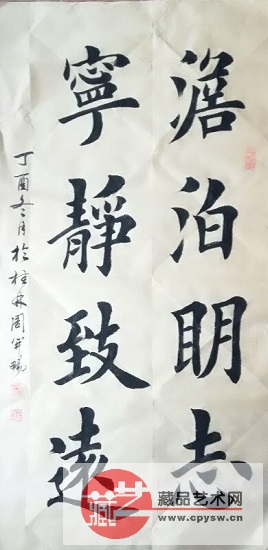 澹泊眀志
寧靜致遠
丁酉冬月於桂林周
藏品艺术网
www.cpysw.cn